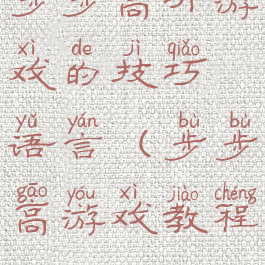 步步高 游
xì de jì qiǎo
戏的技巧
yǔ yán bù bù
语言（步步
gāo yóu xì jiào chéng
高游戏教程